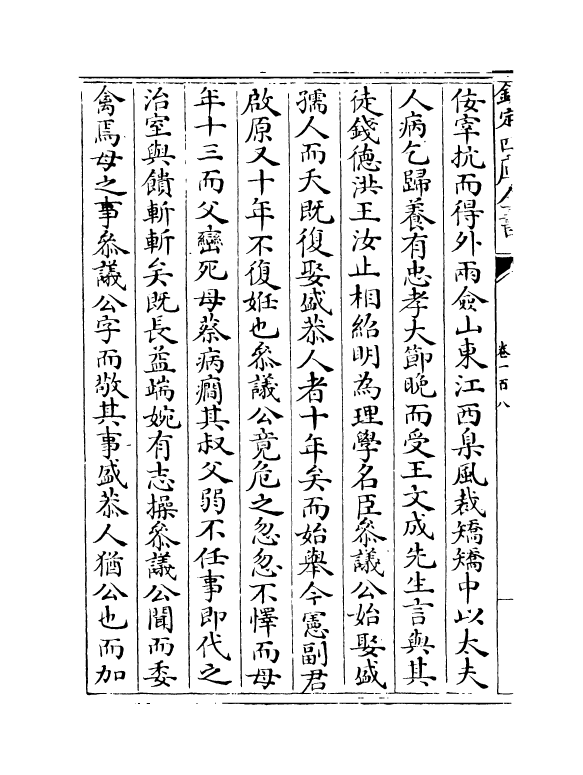 欽定四庫全書
卷一百八
佞宰抗而得外兩僉山東江西臬風裁矯矯中以太夫
人病乞歸養有忠孝大節晚而受王文成先生言與其
徒錢德洪王汝止相紹明為理學名臣叅議公始娶盛
孺人而夭既復娶盛恭人者十年矣而始舉今憲副君
啟原又十年不復姙也叅議公竟危之忽忽不懌而母
年十三而父巒死母蔡病癎其叔父弱不任事即代之
治室與饋斬斬矣既長益端婉有志操叅議公聞而委
禽焉母之事叅議公字而敬其事盛恭人猶公也而加